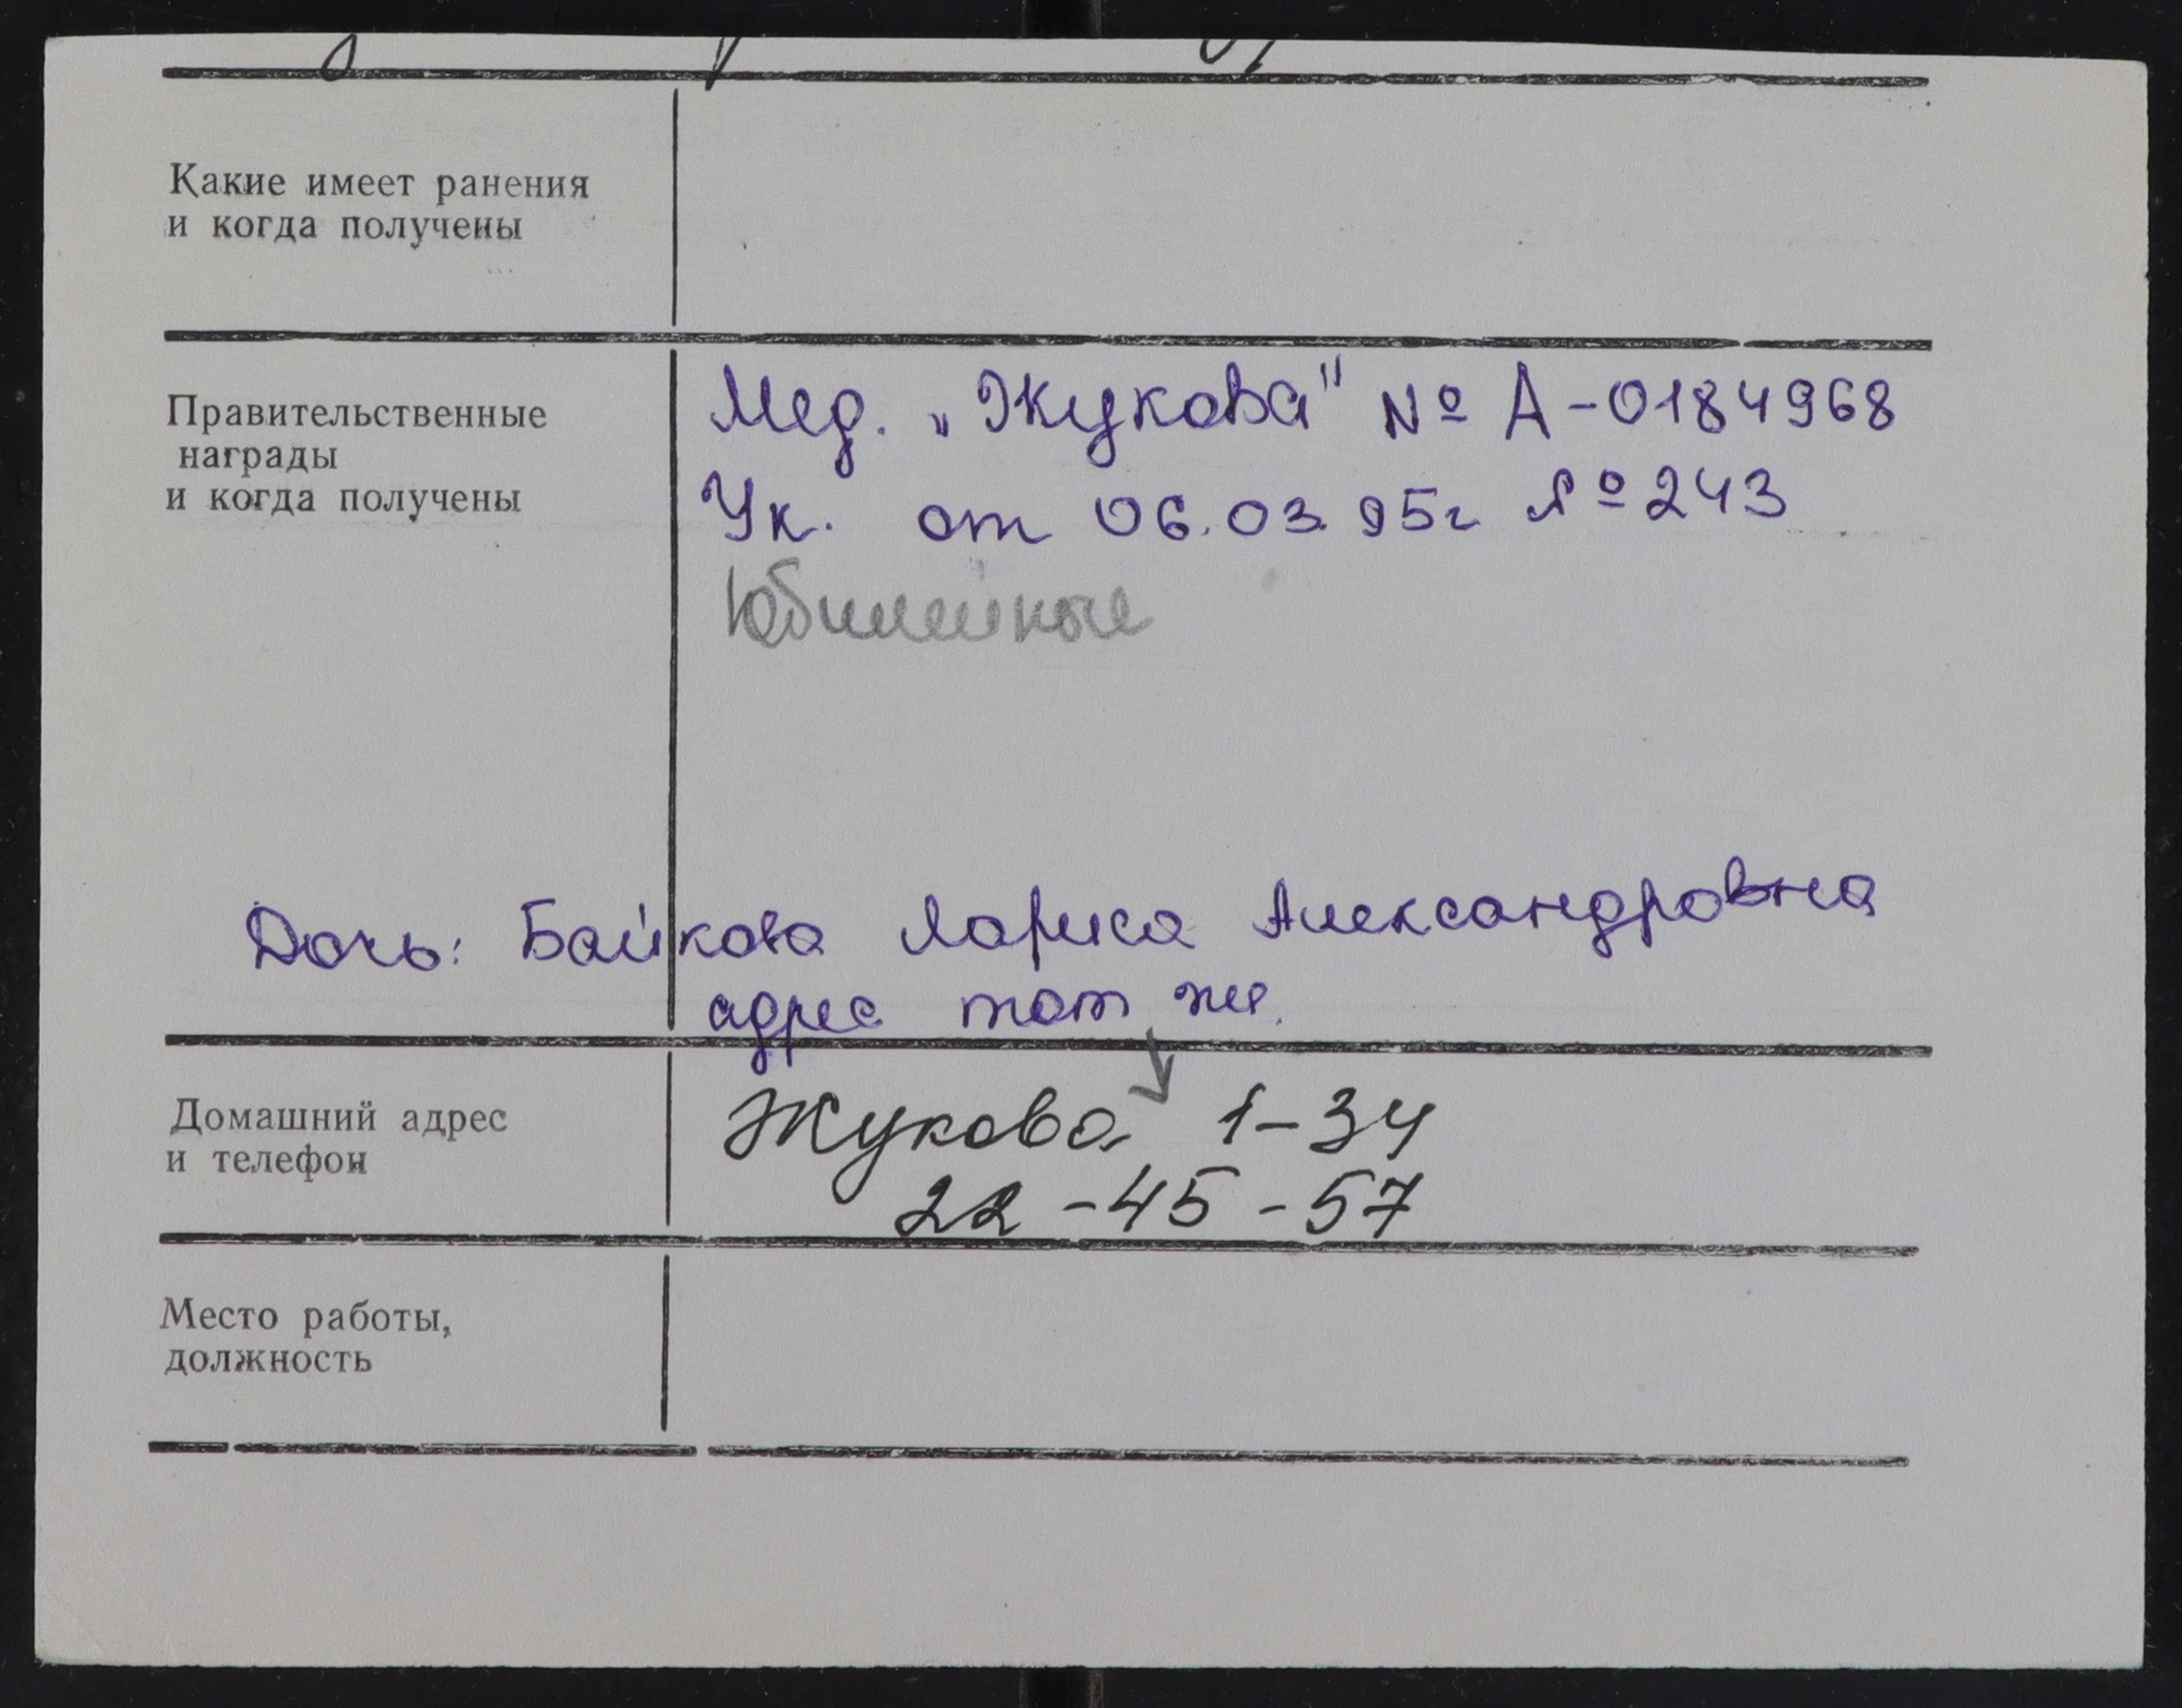 Какие имеет ранения
и когда получены
Правительственные
награды
и когда получены
Мед. „Жукова" № А-0184968
Ук. от 06.03.95г №243
Юбилейные
Дочь: Байкова Лариса Александровна
адрес тот же.
Домашний адрес
и телефон
Жукова 1-34
22-45-57
Место работы,
должность